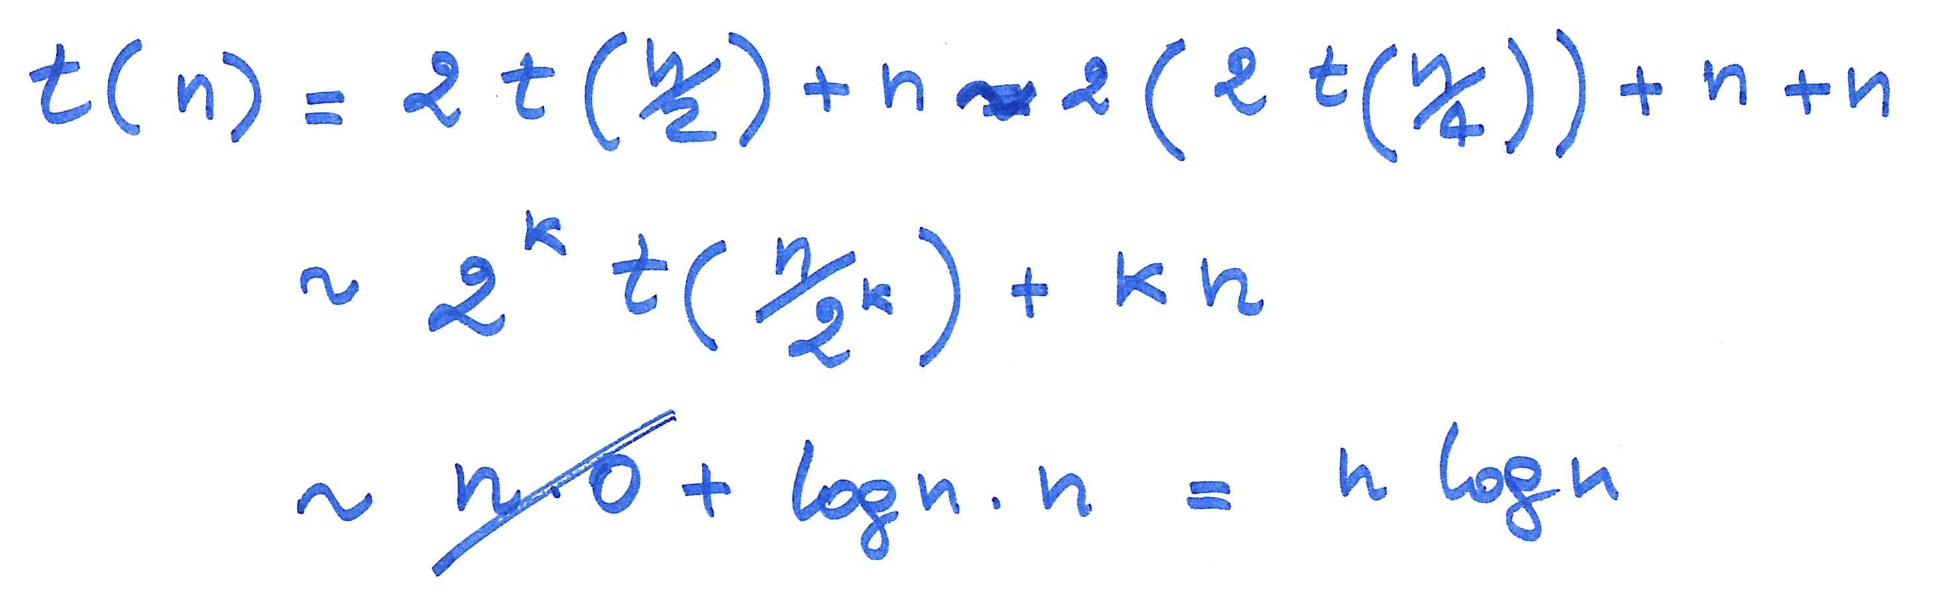 t(n) = 2 t(n/2) + n ~ 2(2 t(n/4)) + n + n
~ 2^k t(n/2^k) + k n
~ n.0 + log n . n = n log n